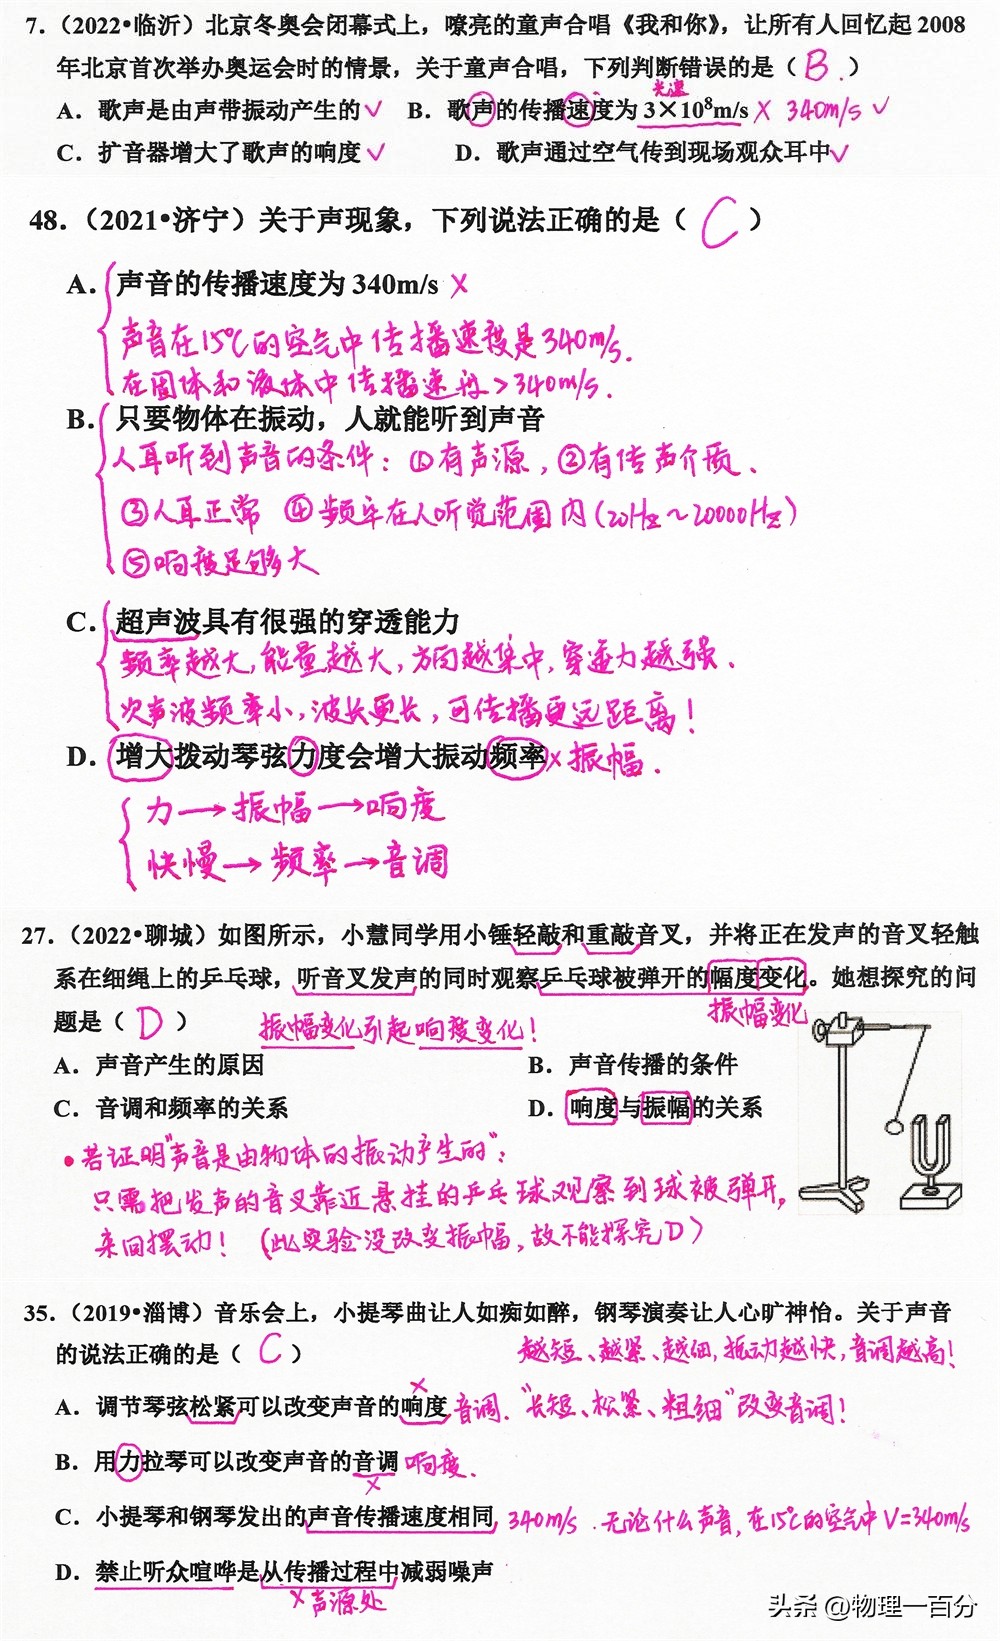 7.（2022•临沂）北京冬奥会闭幕式上，嘹亮的童声合唱《我和你》，让所有人回忆起 2008
年北京首次举办奥运会时的情景，关于童声合唱，下列判断错误的是（ B ）
光速
A．歌声是由声带振动产生的 ✓ B．歌声的传播速度为 3×10⁸m/s × 340m/s ✓
C．扩音器增大了歌声的响度 ✓ D．歌声通过空气传到现场观众耳中 ✓
48.（2021•济宁）关于声现象，下列说法正确的是（ C ）
A．声音的传播速度为 340m/s ×
声音在15℃的空气中传播速度是340m/s.
在固体和液体中传播速度>340m/s.
B．只要物体在振动，人就能听到声音
人耳听到声音的条件：①有声源，②有传声介质、
③人耳正常 ④频率在人听觉范围内(20Hz～20000Hz)
⑤响度足够大
C．超声波具有很强的穿透能力
频率越大，能量越大，方向越集中，穿透力越强、
次声波频率小，波长更长，可传播更远距离！
D．增大拨动琴弦力度会增大振动频率 × 振幅．
力→振幅→响度
快慢→频率→音调
27.（2022•聊城）如图所示，小慧同学用小锤轻敲和重敲音叉，并将正在发声的音叉轻触
系在细绳上的乒乓球，听音叉发声的同时观察乒乓球被弹开的幅度变化。她想探究的问
题是（ D ） 振幅变化引起响度变化！ 振幅变化
A．声音产生的原因 B．声音传播的条件
C．音调和频率的关系 D．响度与振幅的关系
•若证明"声音是由物体的振动产生的"：
只需把发声的音叉靠近悬挂的乒乓球观察到球被弹开，
来回摆动！（此实验没改变振幅，故不能探究D）
35.（2019•淄博）音乐会上，小提琴曲让人如痴如醉，钢琴演奏让人心旷神怡。关于声音
的说法正确的是（ C ） 越短、越紧、越细，振动越快，音调越高！
A．调节琴弦松紧可以改变声音的响度 × 音调．"长短、松紧、粗细"改变音调！
B．用力拉琴可以改变声音的音调 × 响度．
C．小提琴和钢琴发出的声音传播速度相同 340m/s．无论什么声音，在15℃的空气中V=340m/s
D．禁止听众喧哗是从传播过程中减弱噪声
× 声源处
头条 @物理一百分